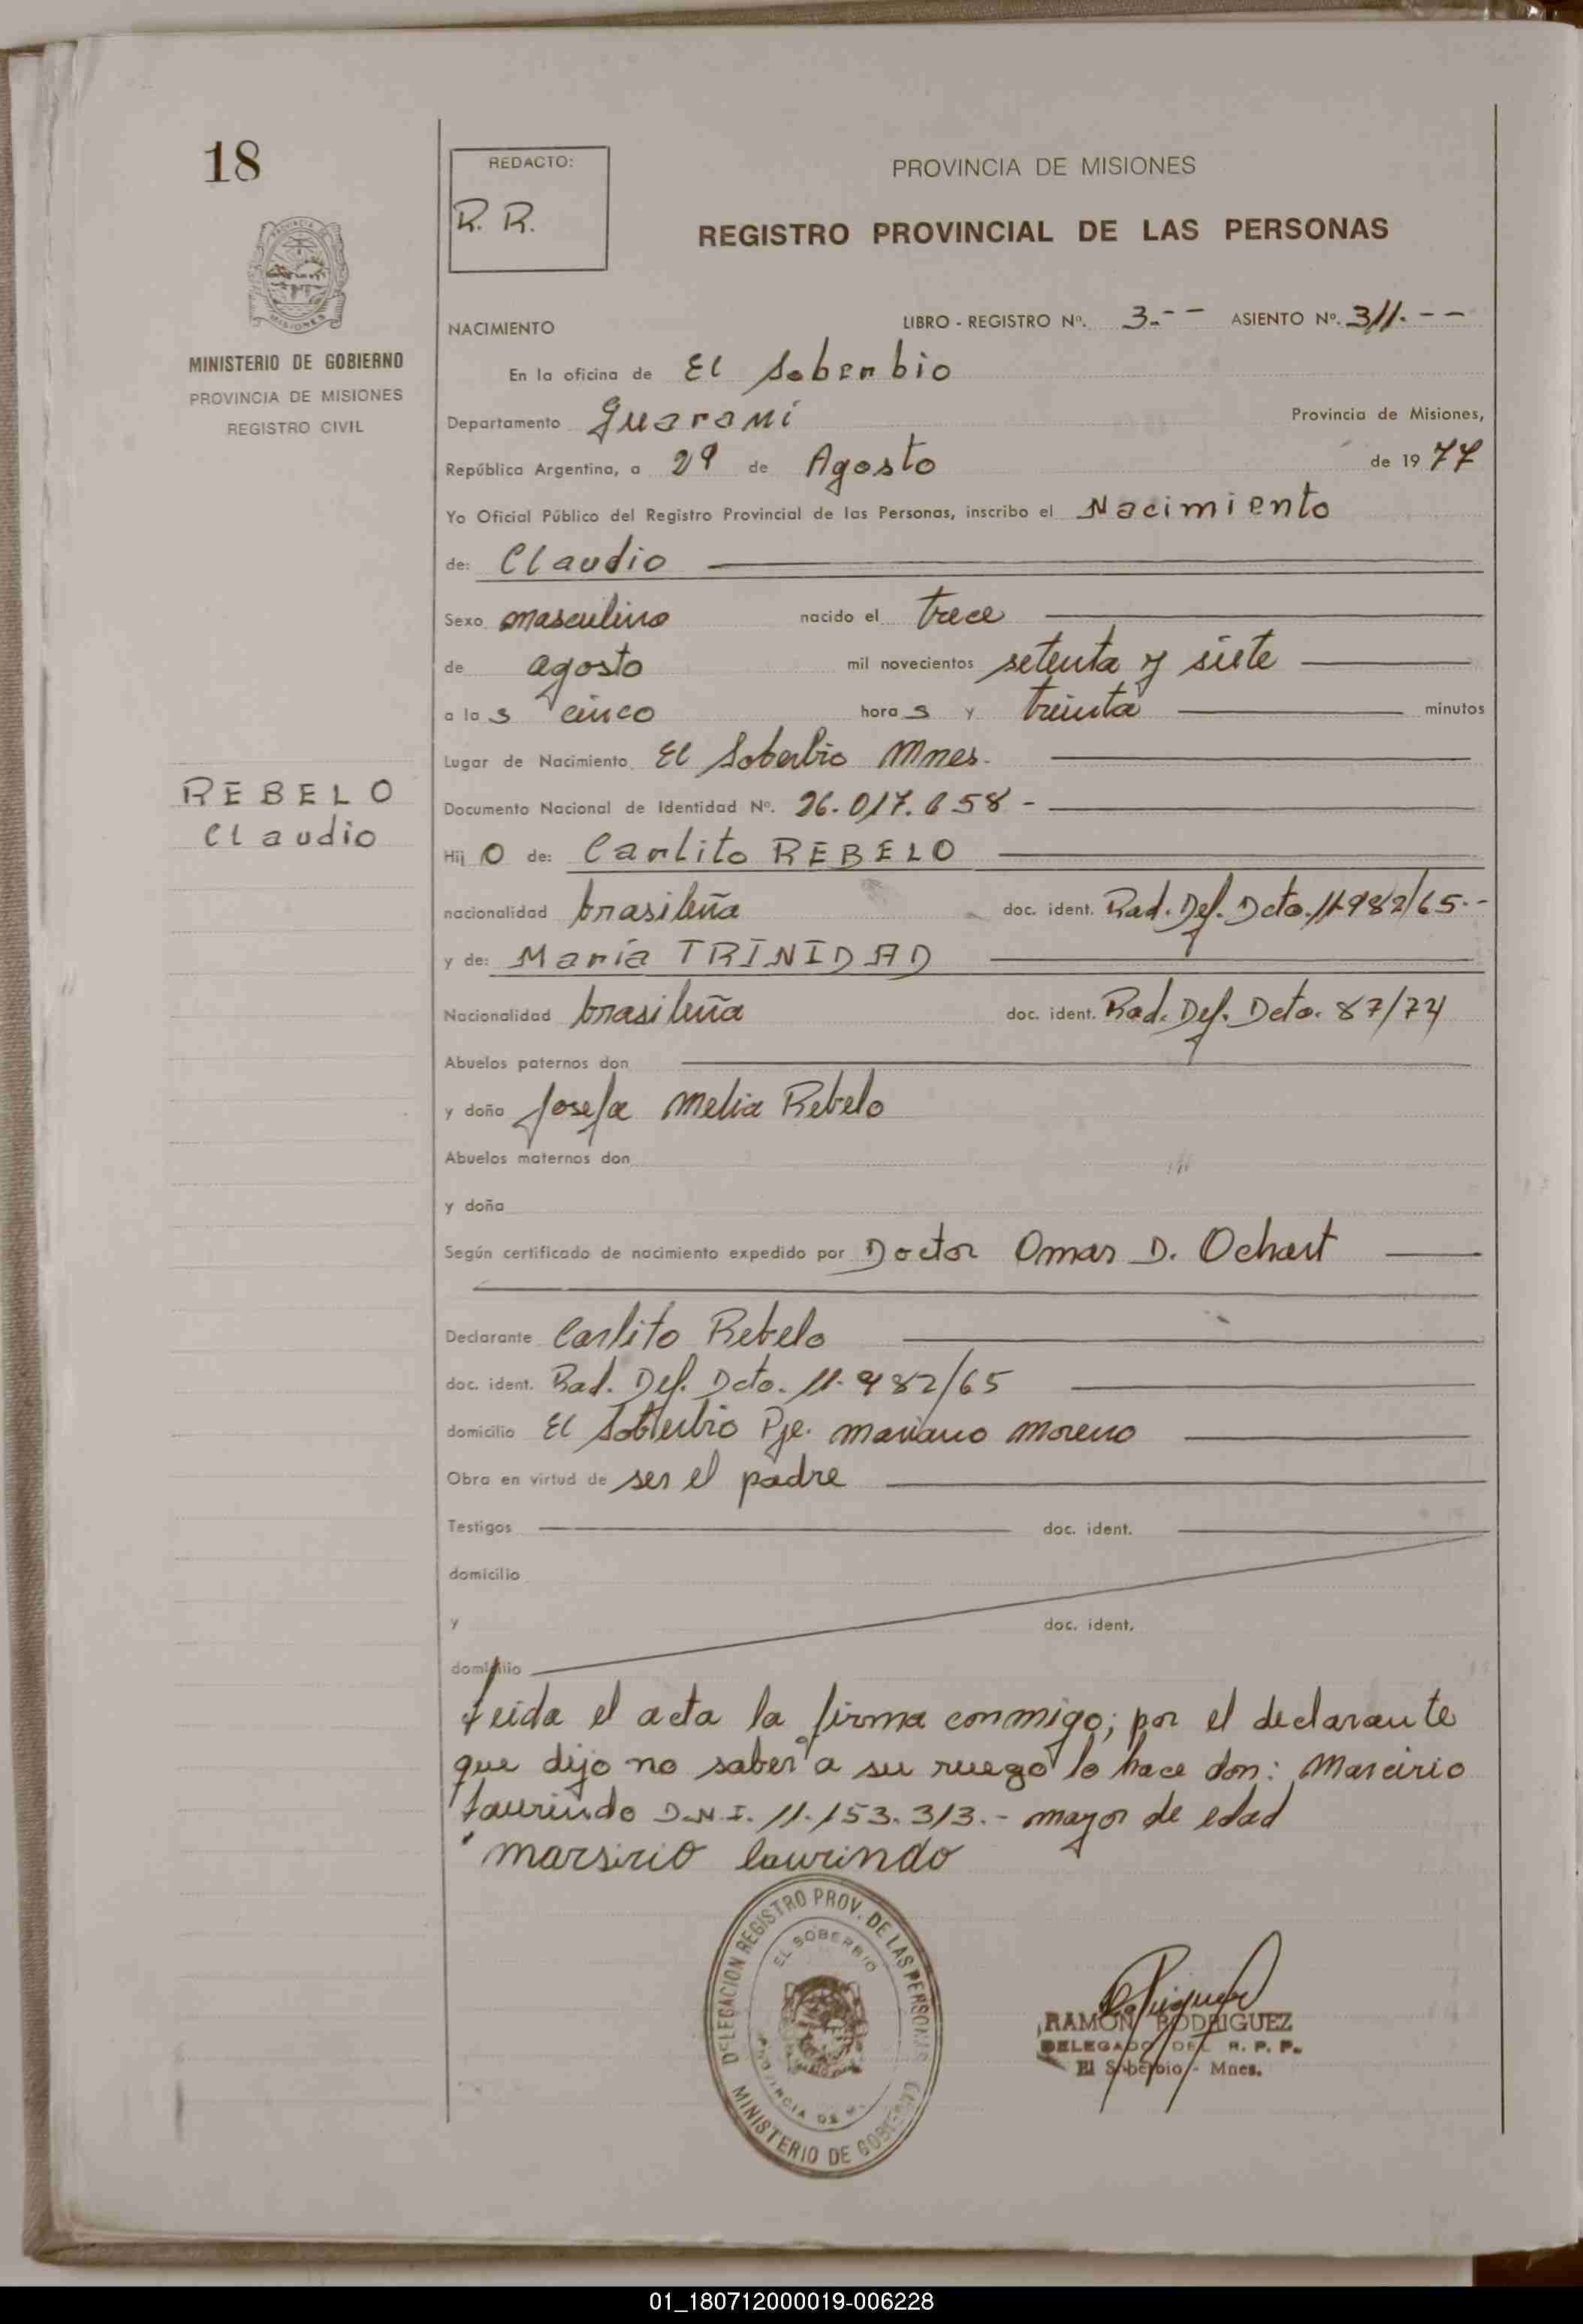 18
REDACTO:
R. R.
PROVINCIA DE MISIONES
REGISTRO PROVINCIAL DE LAS PERSONAS
MINISTERIO DE GOBIERNO
PROVINCIA DE MISIONES
REGISTRO CIVIL
NACIMIENTO LIBRO - REGISTRO Nº. 3.-- ASIENTO Nº. 311.--
En la oficina de El Soberbio
Departamento Guaraní Provincia de Misiones,
República Argentina, a 29 de Agosto de 1977
Yo Oficial Público del Registro Provincial de las Personas, inscribo el Nacimiento
de: Claudio
Sexo masculino nacido el trece
de agosto mil novecientos setenta y siete
a las cinco horas y treinta minutos
Lugar de Nacimiento El Soberbio Mnes.
REBELO
Claudio
Documento Nacional de Identidad Nº. 26.017.658-
Hijo de: Carlito REBELO
nacionalidad brasileña doc. ident. Rad. Def. Dcto. 11.982/65.-
y de: María TRINIDAD
Nacionalidad brasileña doc. ident. Rad. Def. Dcto. 87/74
Abuelos paternos don
y doña Josefa Melia Rebelo
Abuelos maternos don
y doña
Según certificado de nacimiento expedido por Doctor Omar D. Ochart
Declarante Carlito Rebelo
doc. ident. Rad. Def. Dcto. 11.982/65
domicilio El Soberbio Pje. Mariano Moreno
Obra en virtud de ser el padre
Testigos doc. ident.
domicilio
y doc. ident.
domicilio
Leida el acta la firma conmigo; por el declarante
que dijo no saber a su ruego lo hace don: Marcirio
Laurindo D.N.I. 11.153.313.- mayor de edad
marsirio laurindo
DELEGACION REGISTRO PROV. DE LAS PERSONAS
EL SOBERBIO
PROVINCIA DE M.
MINISTERIO DE GOBIERNO
RAMON RODRIGUEZ
DELEGADO DEL R. P. P.
El Soberbio - Mnes.
01_180712000019-006228